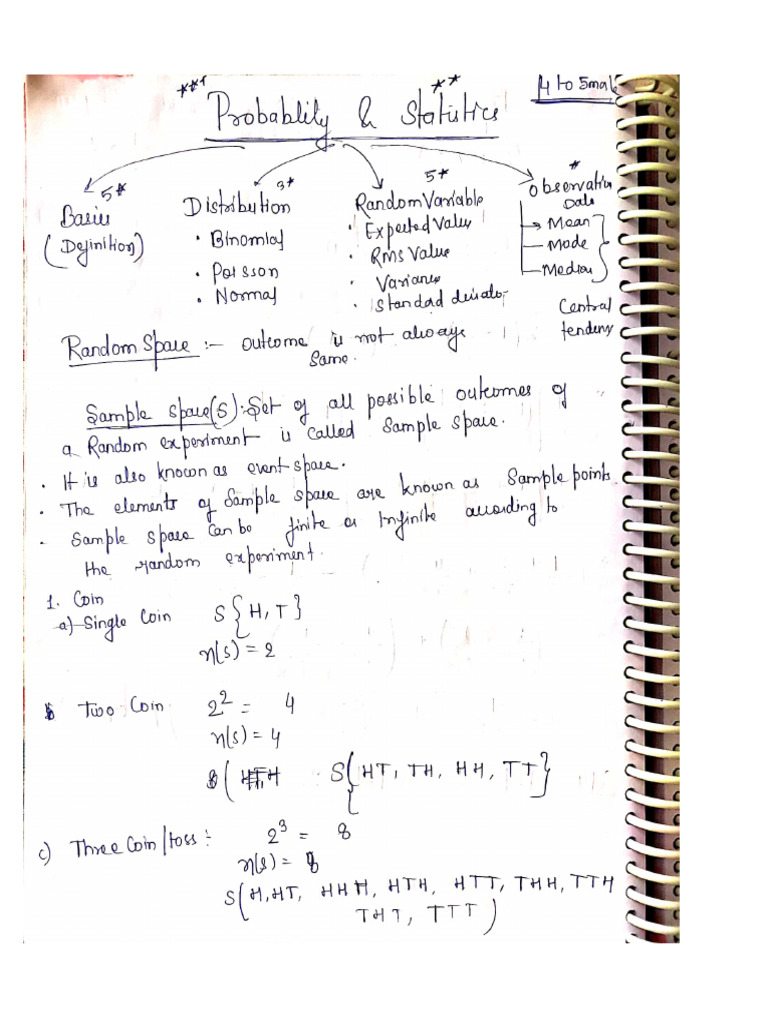 ***
**
4 to 5 ma
Probablily & Statistics
5*
3*
5*
*
Basics
(Definition)
Distribution
• Binomial
• Poisson
• Normal
Random Variable
• Expected Value
• Rms Value
• Variance
• Standad
Observation
Data
→ Mean
— Mode
— Median
Central
tendency
Random Space :- outcome is not always
Same.
Sample space(S):- Set of all possible outcomes of
a Random experiment is called Sample space.
• It is also known as event space.
• The elements of Sample space are known as Sample points.
- Sample space can be finite or Infinite according to
the random experiment.
1. Coin
a) Single Coin S{H,T}
n(s) = 2
Two Coin 2² = 4
n(s) = 4
S{HT, TH, HH, TT}
c) Three Coin/toss :- 2³ = 8
n(s) = 8
S(H,HT, HHH, HTH, HTT, THH, TTH
THT, TTT)